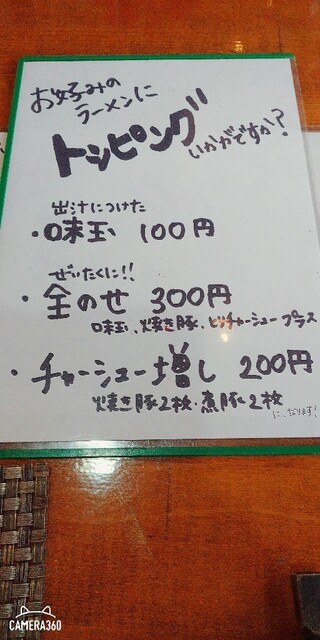 お好みの
ラーメンに
トッピング
いかがですか?
出汁につけた
・味玉 100円
ぜいたくに!!
・全のせ 300円
味玉、焼き豚・ピリチャーシュープラス
・チャーシュー増し 200円
焼き豚2枚・煮豚2枚
になります!
CAMERA360